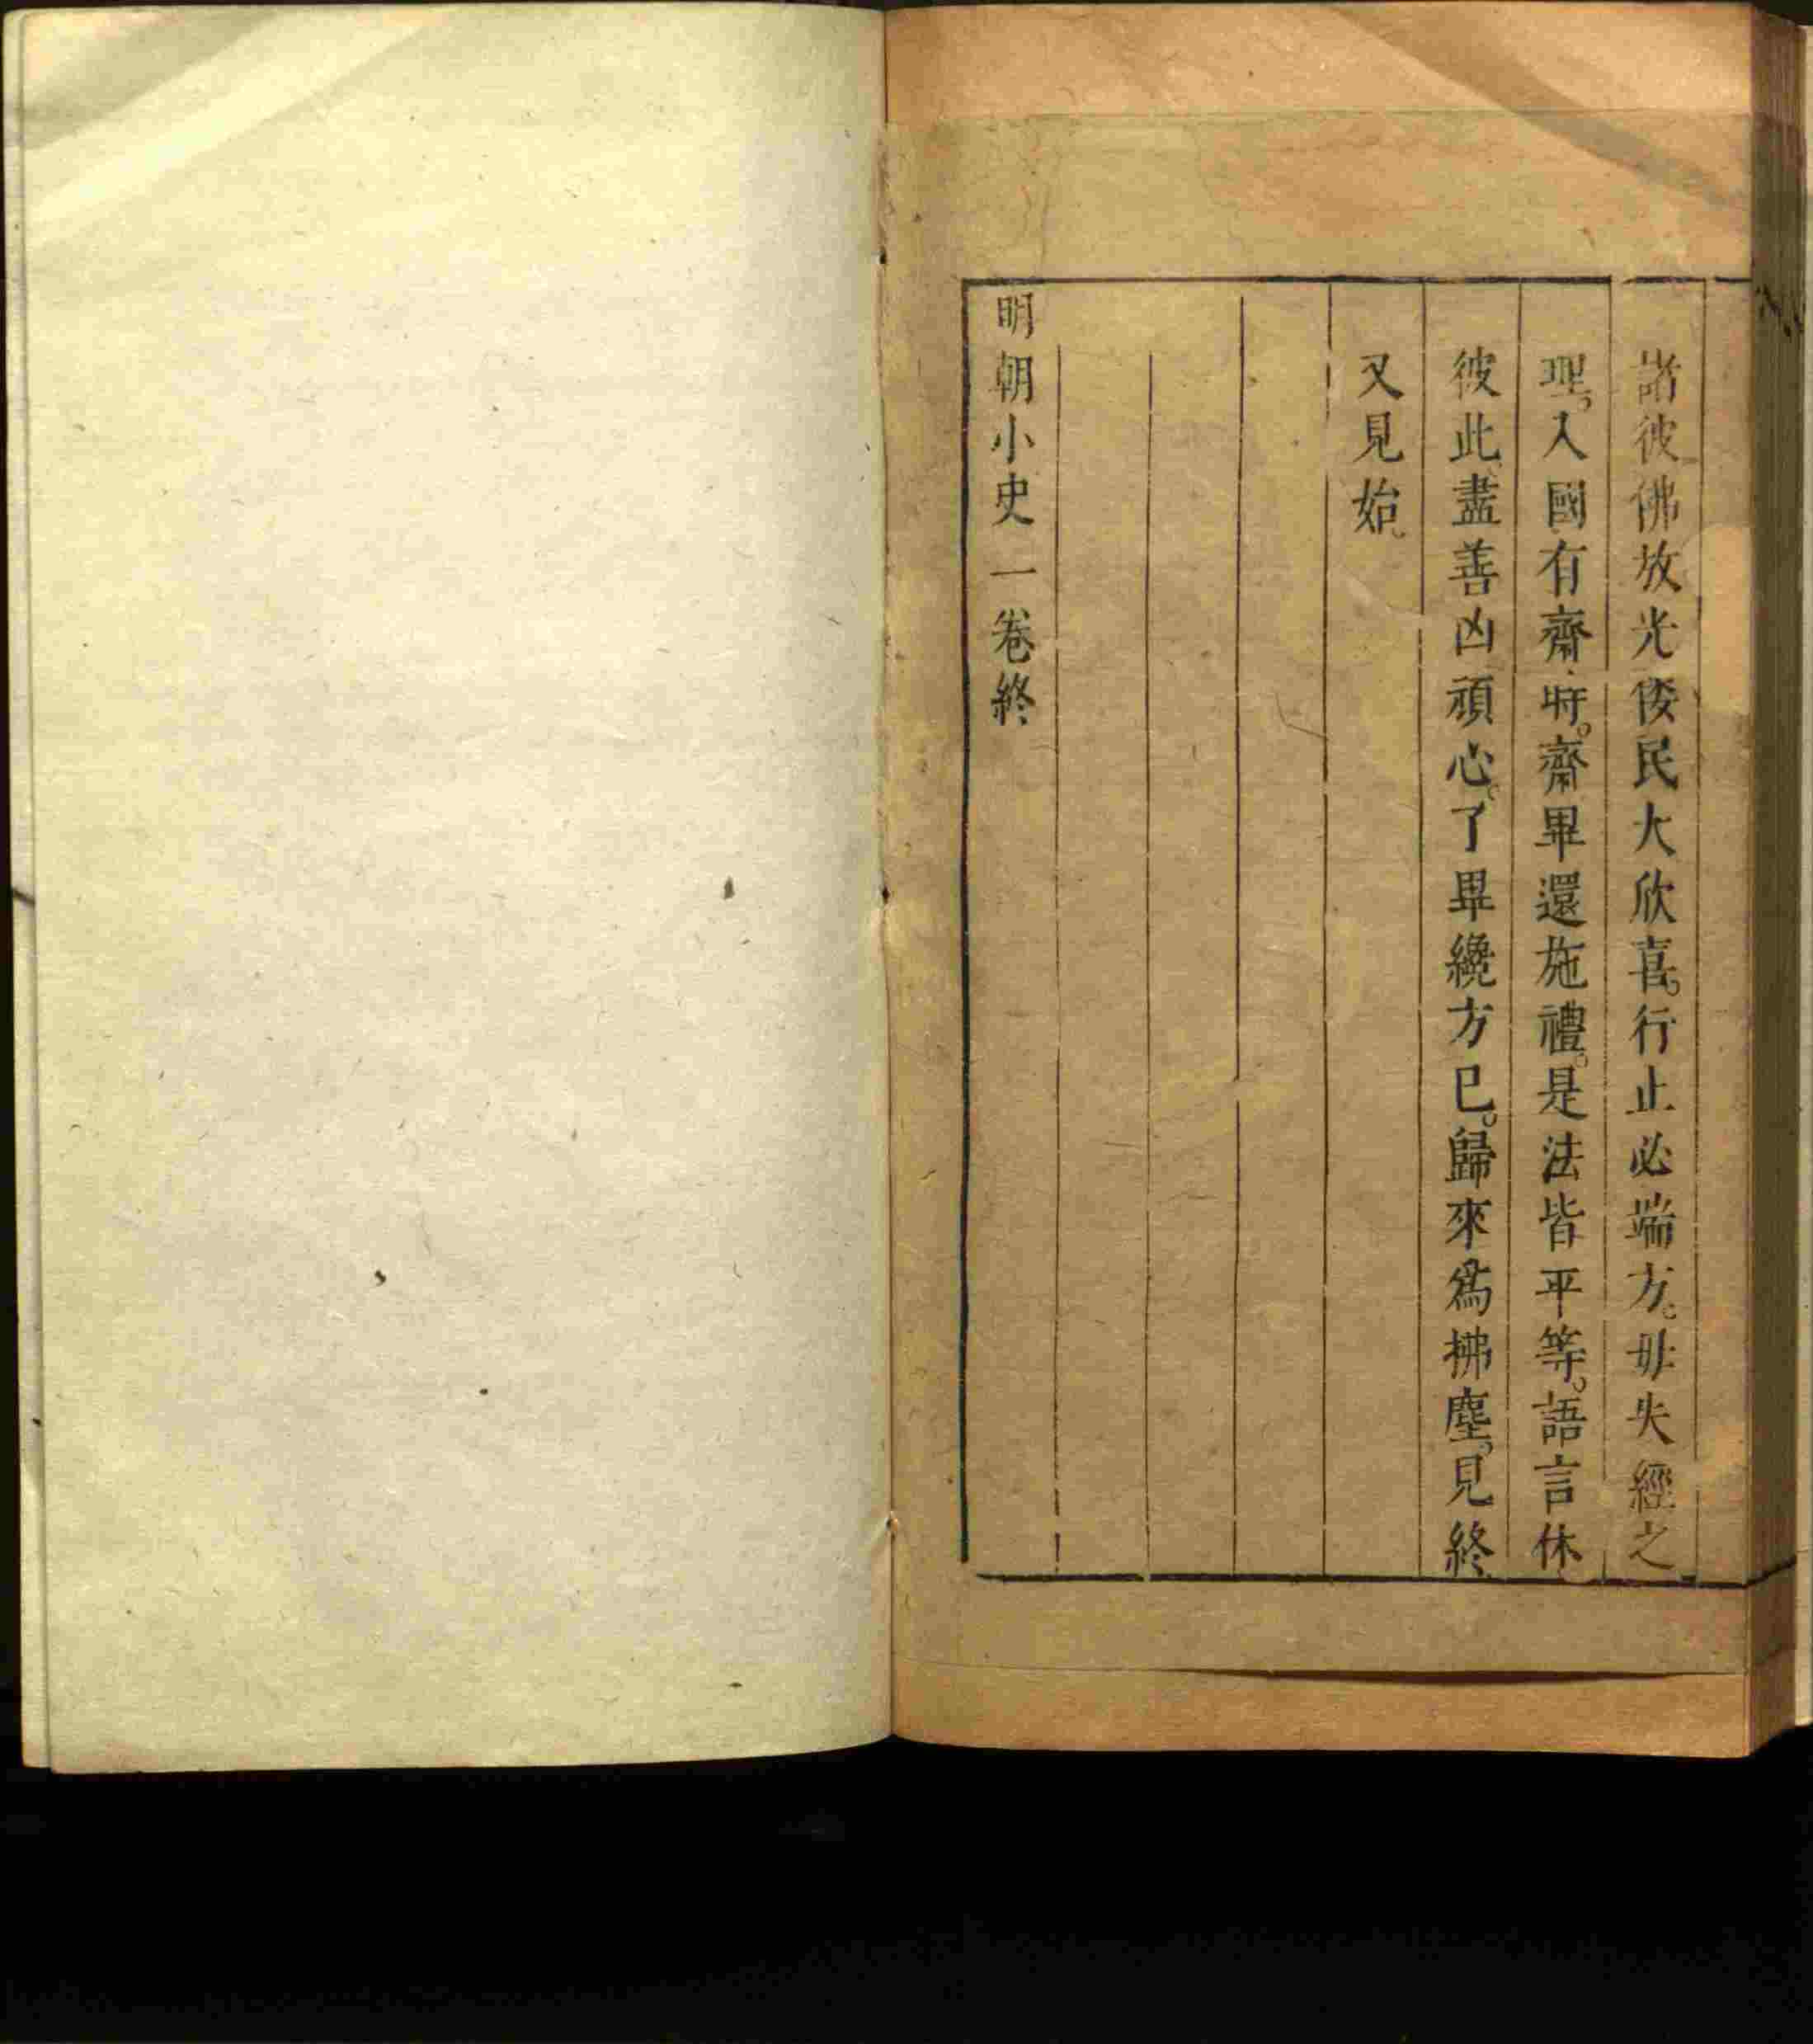 諸彼佛放光倭民大欣喜。行止必端方。毋失經之
理。入國有齋時。齋畢還施禮。是法皆平等。語言休
彼此。盡善凶頑心。了畢纔方已。歸來爲拂塵。見終
又見始。
明朝小史一卷終